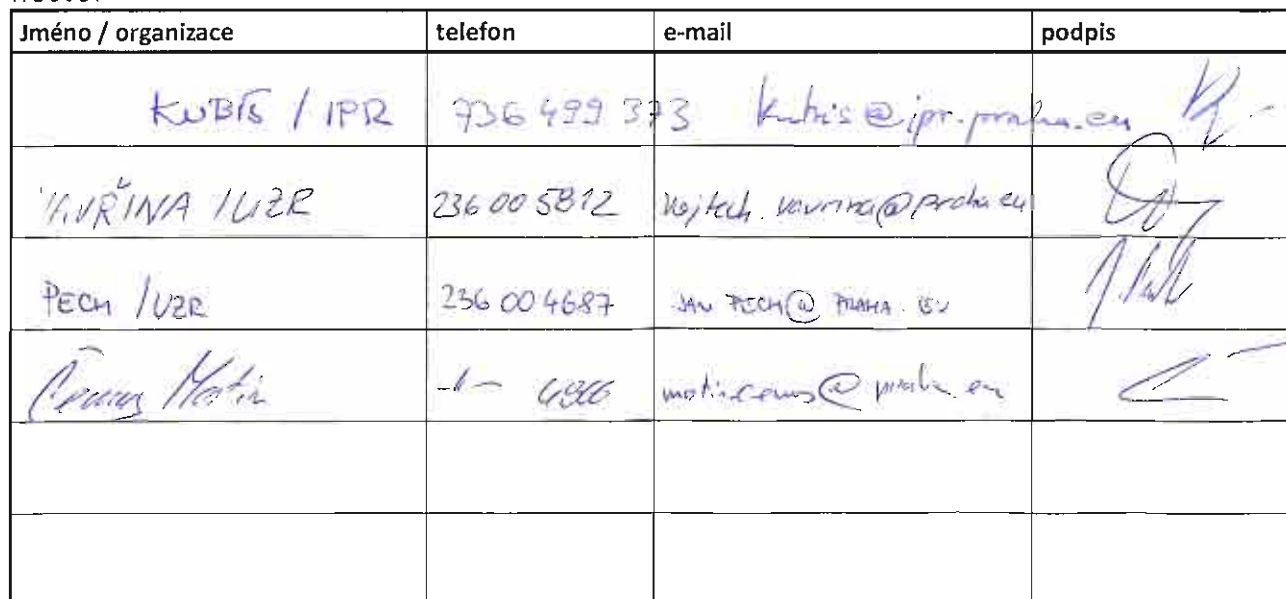 Jméno / organizace telefon e-mail podpis
KUBIŠ / IPR 736 499 373 kubis@ipr.praha.eu
VAVŘINA / UZR 236 00 5812 vojtech.vavrina@praha.eu
PECH / UZR 236 00 4687 JAN.PECH@PRAHA.EU
Martin -11-